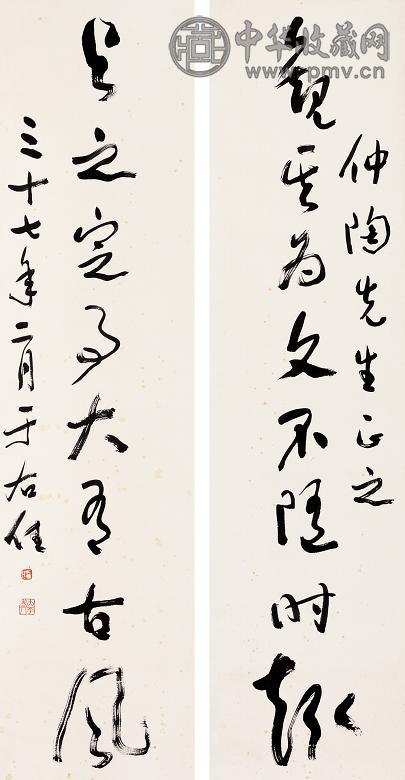 中华收藏网
www.pmv.cn
仲陶先生正之
观其为文不随时趣
与之定交大有古风
三十七年二月于右任